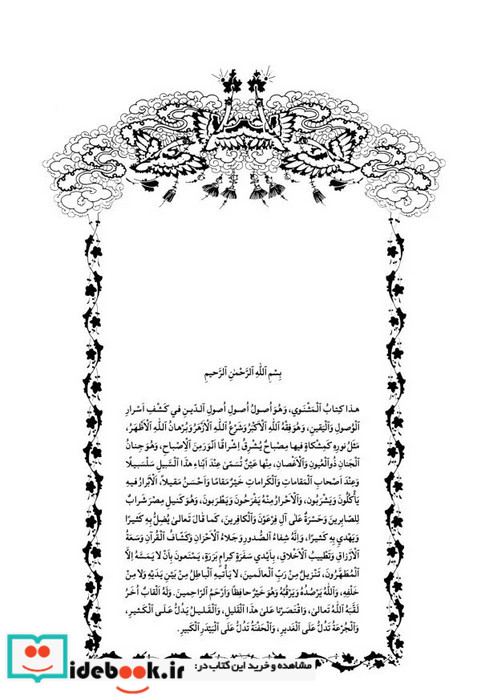 بِسْمِ اَللّٰهِ اَلرَّحْمٰنِ اَلرَّحیمِ
هذا کِتابُ اَلْمَثْنَوي، وَهُوَ اُصولُ اُصولِ اُصولِ اَلدّینِ في کَشْفِ اَسْرارِ
اَلْوُصولِ وَاَلْیَقینِ، وَهُوَ فِقْهُ اَللّٰهِ اَلْاَکْبَرُ وَشَرْعُ اَللّٰهِ اَلْاَزْهَرُ وَبُرْهانُ اَللّٰهِ اَلْاَظْهَرُ،
مَثَلُ نورِهِ کَمِشْکاةٍ فیها مِصْباحٌ یُشْرِقُ اِشْراقًا اَنْوَرَ مِنَ اَلْاِصْباحِ، وَهُوَ جِنانُ
اَلْجَنانِ ذُو اَلْعُیونِ وَاَلْاَغْصانِ، مِنْها عَیْنٌ تُسَمّیٰ عِنْدَ اَبْناءِ هذَا اَلسَّبیلِ سَلْسَبیلًا
وَعِنْدَ اَصْحابِ اَلْمَقاماتِ وَاَلْکَراماتِ خَیْرٌ مَقامًا وَاَحْسَنُ مَقیلًا، اَلْاَبْرارُ فیهِ
یَأْکُلُونَ وَیَشْرَبُونَ، وَاَلْاَحْرارُ مِنْهُ یَفْرَحُونَ وَیَطْرَبُونَ، وَهُوَ کَنیلِ مِصْرَ شَرابٌ
لِلصّابِرینَ وَحَسْرَةٌ عَلیٰ آلِ فِرْعَوْنَ وَاَلْکافِرینَ، کَما قالَ تَعالیٰ یُضِلُّ بِهِ کَثیرًا
وَیَهْدي بِهِ کَثیرًا، وَاِنَّهُ شِفاءُ اَلصُّدورِ وَجَلاءُ اَلْاَحْزانِ وَکَشّافُ اَلْقُرْآنِ وَسَعَةُ
اَلْاَرْزاقِ وَتَطْییبُ اَلْاَخْلاقِ، بِاَیْدي سَفَرَةٍ کِرامٍ بَرَرَةٍ، یَمْنَعونَ بِاَنْ لا یَمَسَّهُ اِلَّا
اَلْمُطَهَّرُونَ، تَنْزیلٌ مِنْ رَبِّ اَلْعالَمینَ، لا یَأْتیهِ اَلْباطِلُ مِنْ بَیْنِ یَدَیْهِ وَلا مِنْ
خَلْفِهِ، وَاَللّٰهُ یَرْصُدُهُ وَیَرْقُبُهُ وَهُوَ خَیْرٌ حافِظًا وَاَرْحَمُ اَلرّاحِمینَ. وَلَهُ اَلْقابٌ اُخَرُ
لَقَّبَهُ اَللّٰهُ تَعالیٰ، وَاقْتَصَرْنا عَلیٰ هذَا اَلْقَلیلِ، وَاَلْقَلیلُ یَدُلُّ عَلَی اَلْکَثیرِ،
وَاَلْجُرْعَةُ تَدُلُّ عَلَی اَلْغَدیرِ، وَاَلْحَفْنَةُ تَدُلُّ عَلَی اَلْبَیْدَرِ اَلْکَبیرِ.
مشاهده و خرید این کتاب در:
idebook.ir